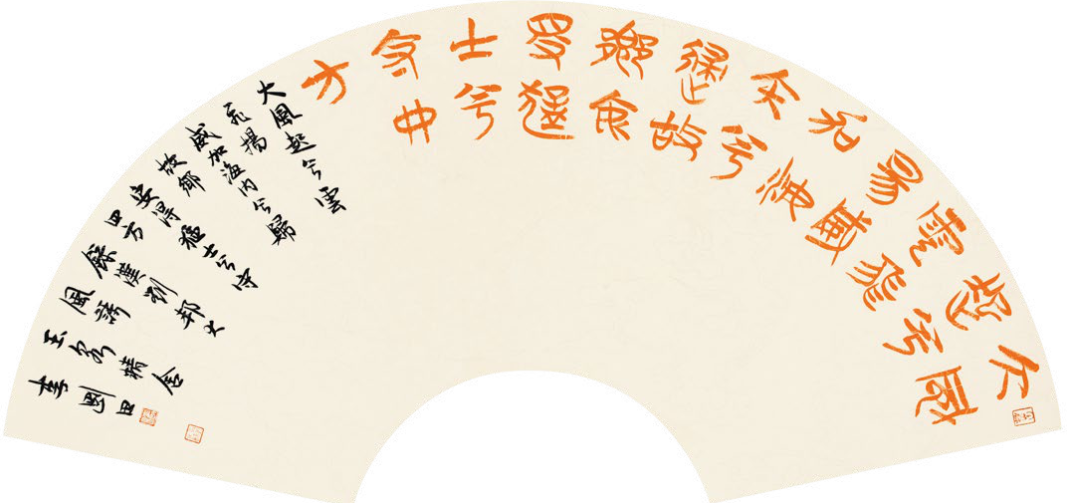 大風
起兮
雲飛
昜威
加海
內兮
歸故
鄉安
得猛
士兮
守四
方
大風起兮雲
飛揚
威加海內兮歸
故鄉
安得猛士兮守
四方
錄漢劉邦大
風謌
玉精舍
李剛田